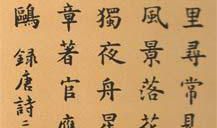 里尋常見
風景落花
獨夜舟星
章著官應
鷗 錄唐詩二